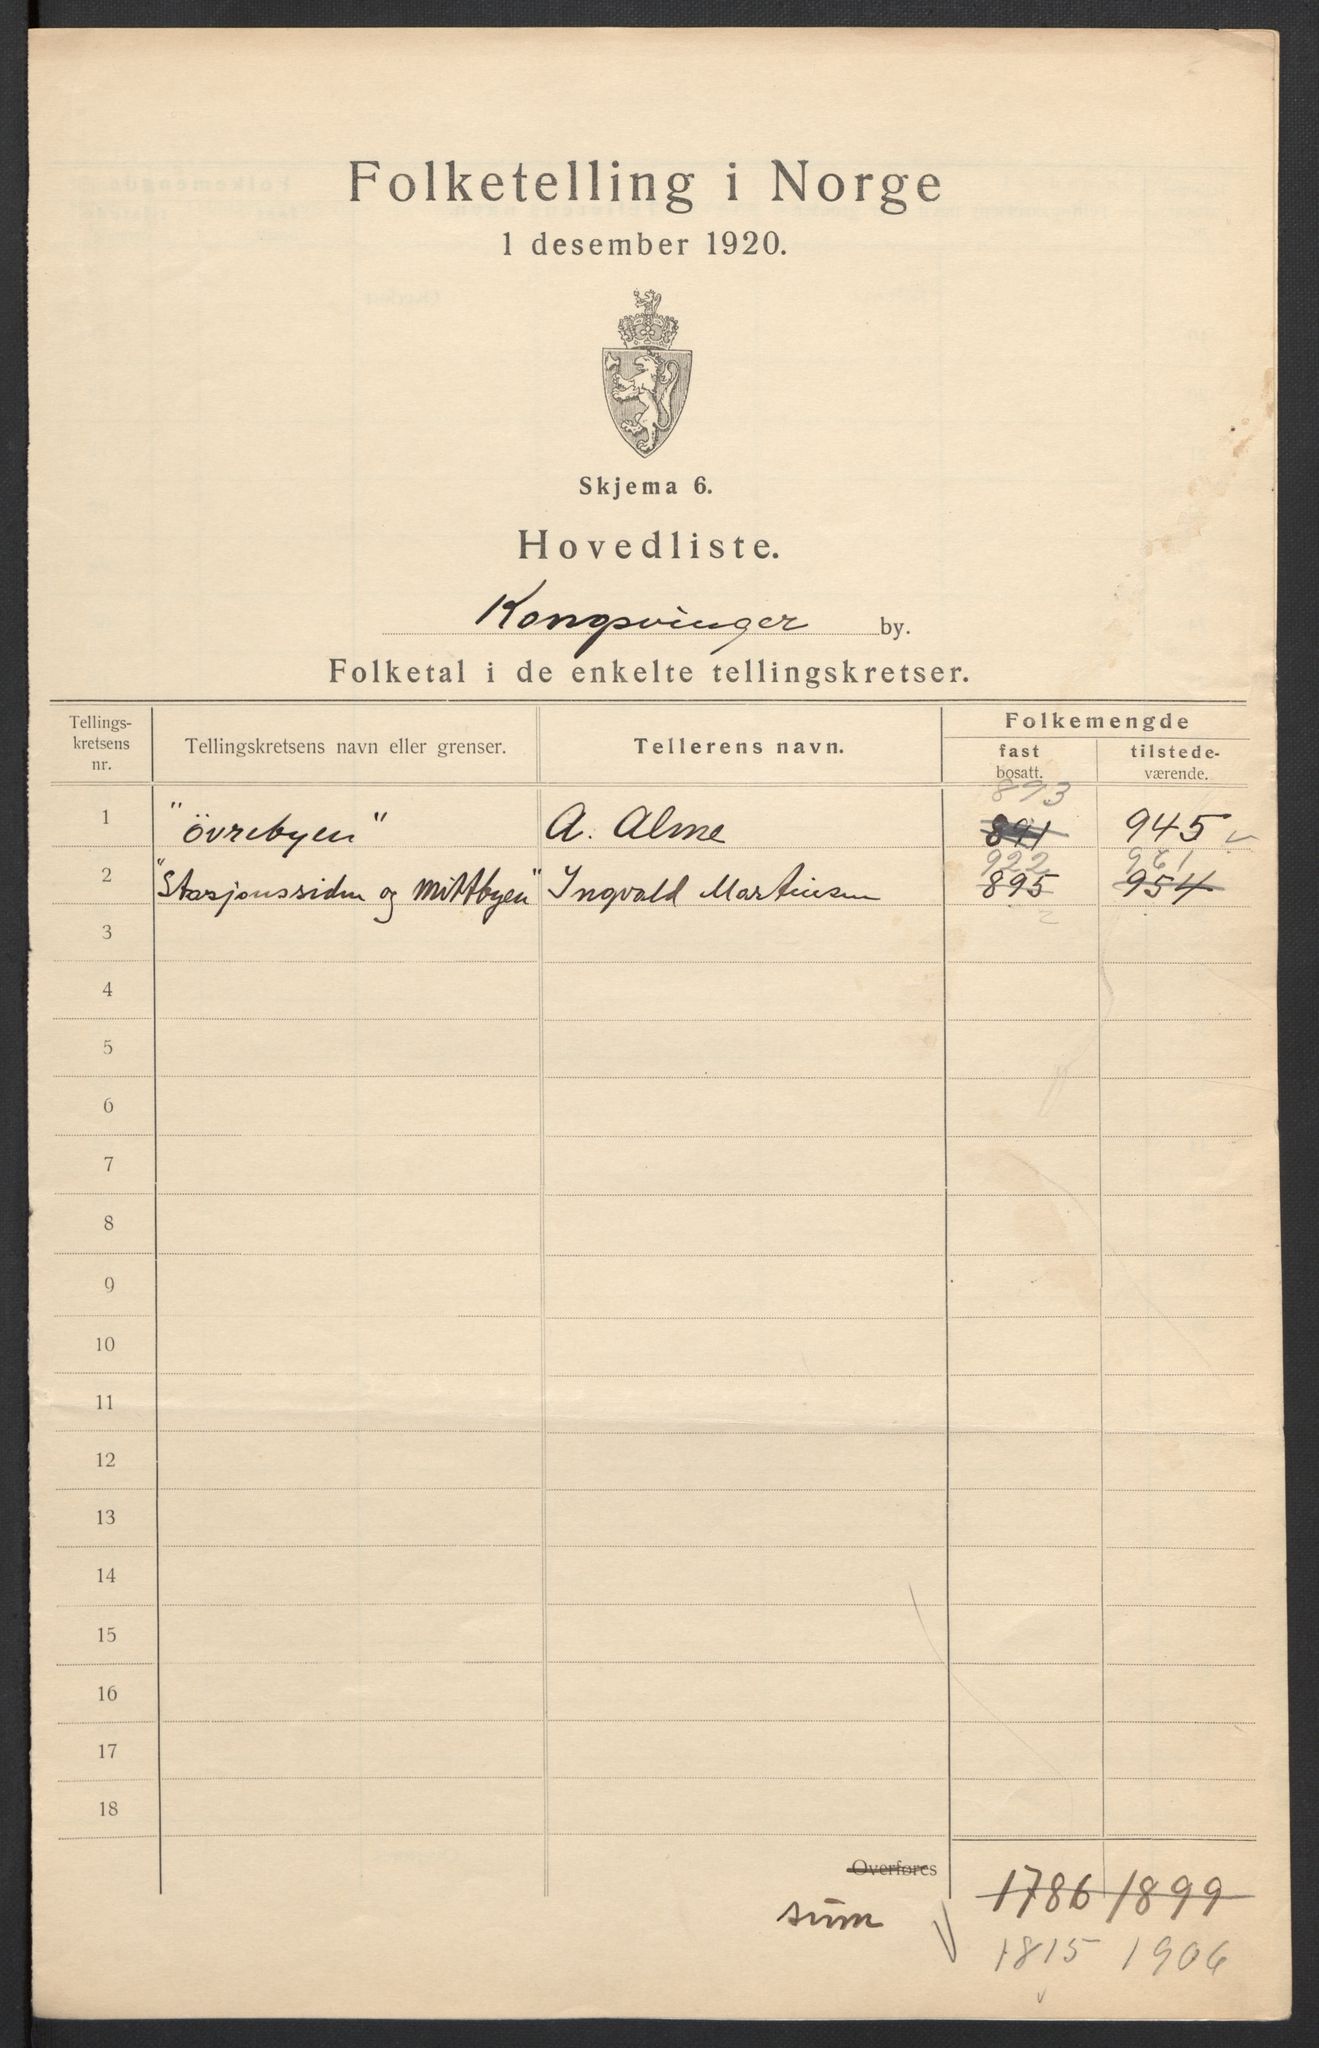 Folketelling i Norge
1 desember 1920.
Skjema 6.
Hovedliste.
Kongsvinger by.
Folketal i de enkelte tellingskretser.
Tellings-
kretsens
nr.
Tellingskretsens navn eller grenser.
Tellerens navn.
Folkemengde
fast
bosatt.
tilstede-
værende.
893
1 "Övrebyen" A. Alme 891 945
922 961
2 "Stasjonssiden og Mittbyen" Ingvald Martinsen 895 954
3
4
5
6
7
8
9
10
11
12
13
14
15
16
17
18
Overføres
1786 1899
sum
1815 1906